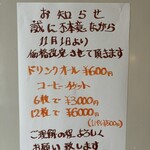 お知らせ
誠に勝手ながら
11月1日より
価格改定させて頂きます
ドリンクオール ¥600円
コーヒーチケット
6枚で ¥3000円
12枚で ¥6000円
(1枚¥500円)
ご理解の程よろしく
お願い致します